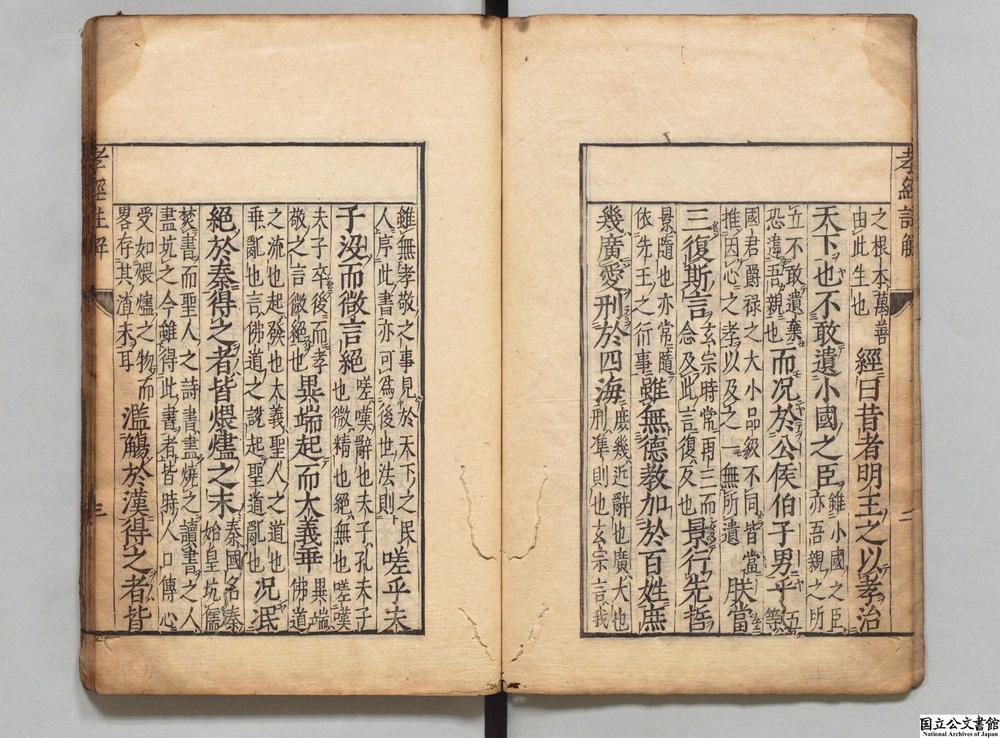 孝經註解
二
之根本萬善
由此生也
經曰昔者明王之以孝治
天下也不敢遺小國之臣
雖小國之臣
亦吾親之所
立不敢遺棄
恐違吾親也
而況於公侯伯子男乎
五
等
國君爵祿之大小品級不同皆當
推因心之孝以及之無所遺
朕當
三復斯言
玄宗時常用三而
念及此言復反也
景行先哲
景隨也亦常隨
依先王之行事
雖無德教加於百姓庶
幾廣愛刑於四海
庶幾近辭也廣大也
刑準則也玄宗言我
雖無孝敬之事見於天下之民
人序此書亦可為後世法則
嗟乎夫
子沒而微言絕
嗟嘆辭也夫子孔夫子
也微精也絕無也嗟嘆
夫子卒後而孝
敬之言微絕也
異端起而大義乖
異端
佛道
之流也起發也大義聖人之道也
乖亂也言佛道之說起聖道亂也
況泯
絕於秦得之者皆煨燼之末
秦國名秦
始皇坑儒
焚書而聖人之詩書盡燒之讀書之人
盡坑之今雖得此書者皆時人口傳心
受如煨燼之物而
畧存其渣末耳
濫觴於漢得之者皆
孝經註解
三
国立公文書館
National Archives of Japan